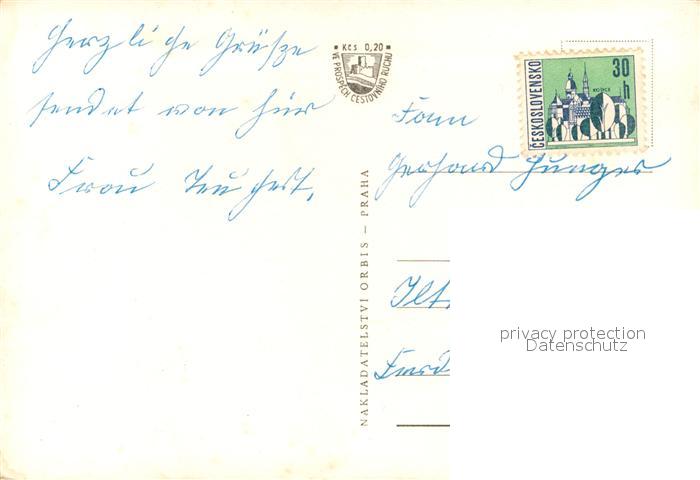 Herzliche Grüße
sendet von hier
Frau
Kčs 0,20
VE PROSPĚCH CESTOVNÍHO RUCHU
NAKLADATELSTVÍ ORBIS — PRAHA
ČESKOSLOVENSKO
30
h
KOŠICE
Fam
Gerhard Hunger
privacy protection
Datenschutz